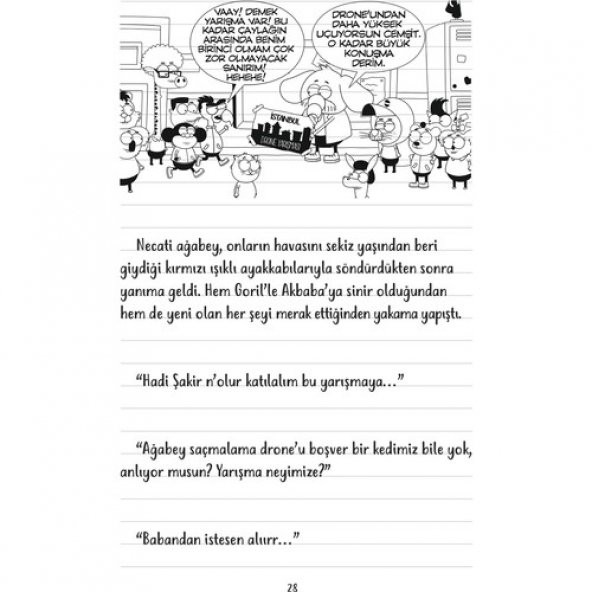 VAAY! DEMEK
YARIŞMA VAR! BU
KADAR ÇAYLAĞIN
ARASINDA BENİM
BİRİNCİ OLMAM ÇOK
ZOR OLMAYACAK
SANIRIM!
HEHEHE!
DRONE'UNDAN
DAHA YÜKSEK
UÇUYORSUN CEMŞİT.
O KADAR BÜYÜK
KONUŞMA
DERİM.
İSTANBUL
DRONE YARIŞMASI
Necati ağabey, onların havasını sekiz yaşından beri
giydiği kırmızı ışıklı ayakkabılarıyla söndürdükten sonra
yanıma geldi. Hem Goril'le Akbaba'ya sinir olduğundan
hem de yeni olan her şeyi merak ettiğinden yakama yapıştı.
“Hadi Şakir n'olur katılalım bu yarışmaya...”
“Ağabey saçmalama drone'u boşver bir kedimiz bile yok,
anlıyor musun? Yarışma neyimize?”
“Babandan istesen alıırr...”
28